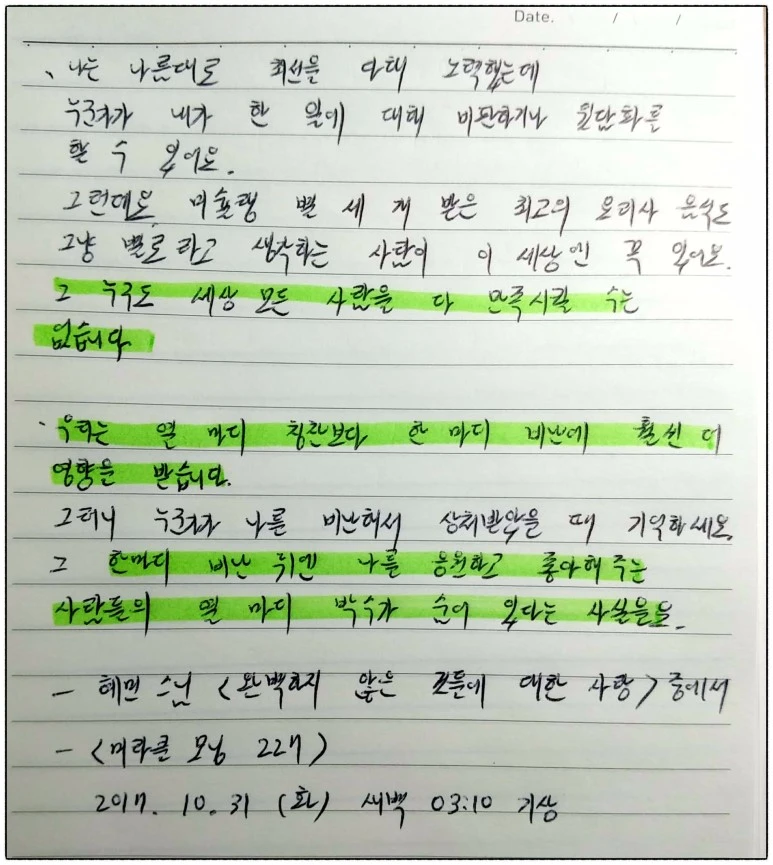 Date. / /
、나는 나름대로 최선을 다해 노력했는데
누군가가 내가 한 일에 대해 비판하거나 뒷담화를
할 수 있어요.
그런데요 미슐랭 별 세 개 받은 최고의 요리사 음식도
그냥 별로라고 생각하는 사람이 이 세상엔 꼭 있어요.
그 누구도 세상 모든 사람을 다 만족시킬 수는
없습니다.
· 우리는 열 마디 칭찬보다 한 마디 비난에 훨씬 더
영향을 받습니다.
그러니 누군가가 나를 비난해서 상처받았을 때 기억하세요.
그 한마디 비난 뒤엔 나를 응원하고 좋아해 주는
사람들의 열 마디 박수가 숨어 있다는 사실을요.
- 혜민 스님 <완벽하지 않은 것들에 대한 사랑> 중에서
- <미라클 모닝 227>
2017. 10. 31 (화) 새벽 03:10 기상